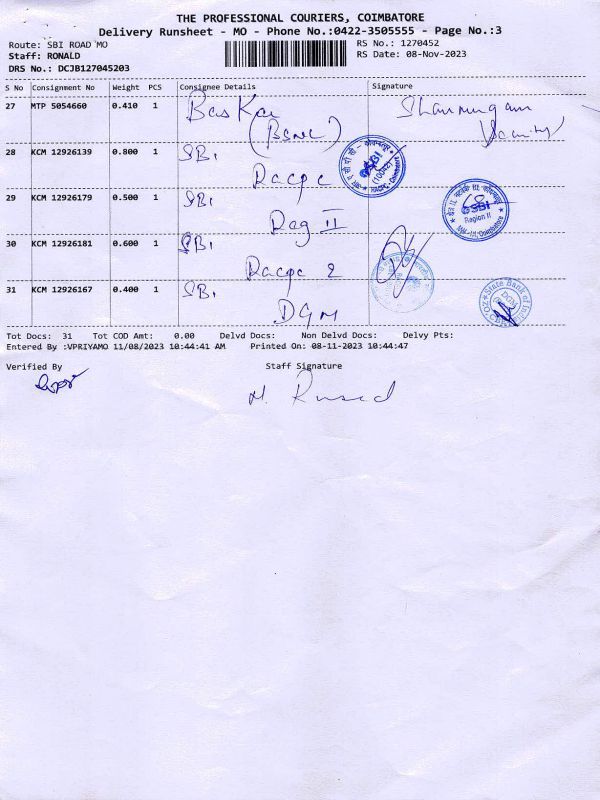 THE PROFESSIONAL COURIERS, COIMBATORE
Delivery Runsheet - MO - Phone No.:0422-3505555 - Page No.:3
Route: SBI ROAD MO
RS No.: 1270452
Staff: RONALD
RS Date: 08-Nov-2023
DRS No.: DCJB127045203
S No Consignment No Weight PCS Consignee Details Signature
27 MTP 5054660 0.410 1 Baskar Shanmugam
(BSNL) Security
28 KCM 12926139 0.800 1 SBI
Racpc
SBI
RACPC, Coimbatore
29 KCM 12926179 0.500 1 SBI
Rag II
SBI
Region II
30 KCM 12926181 0.600 1 SBI
Racpc 2
31 KCM 12926167 0.400 1 SBI
DGM
State Bank of India
DGM
Tot Docs: 31 Tot COD Amt: 0.00 Delvd Docs: Non Delvd Docs: Delvy Pts:
Entered By :VPRIYAMO 11/08/2023 10:44:41 AM Printed On: 08-11-2023 10:44:47
Verified By Staff Signature